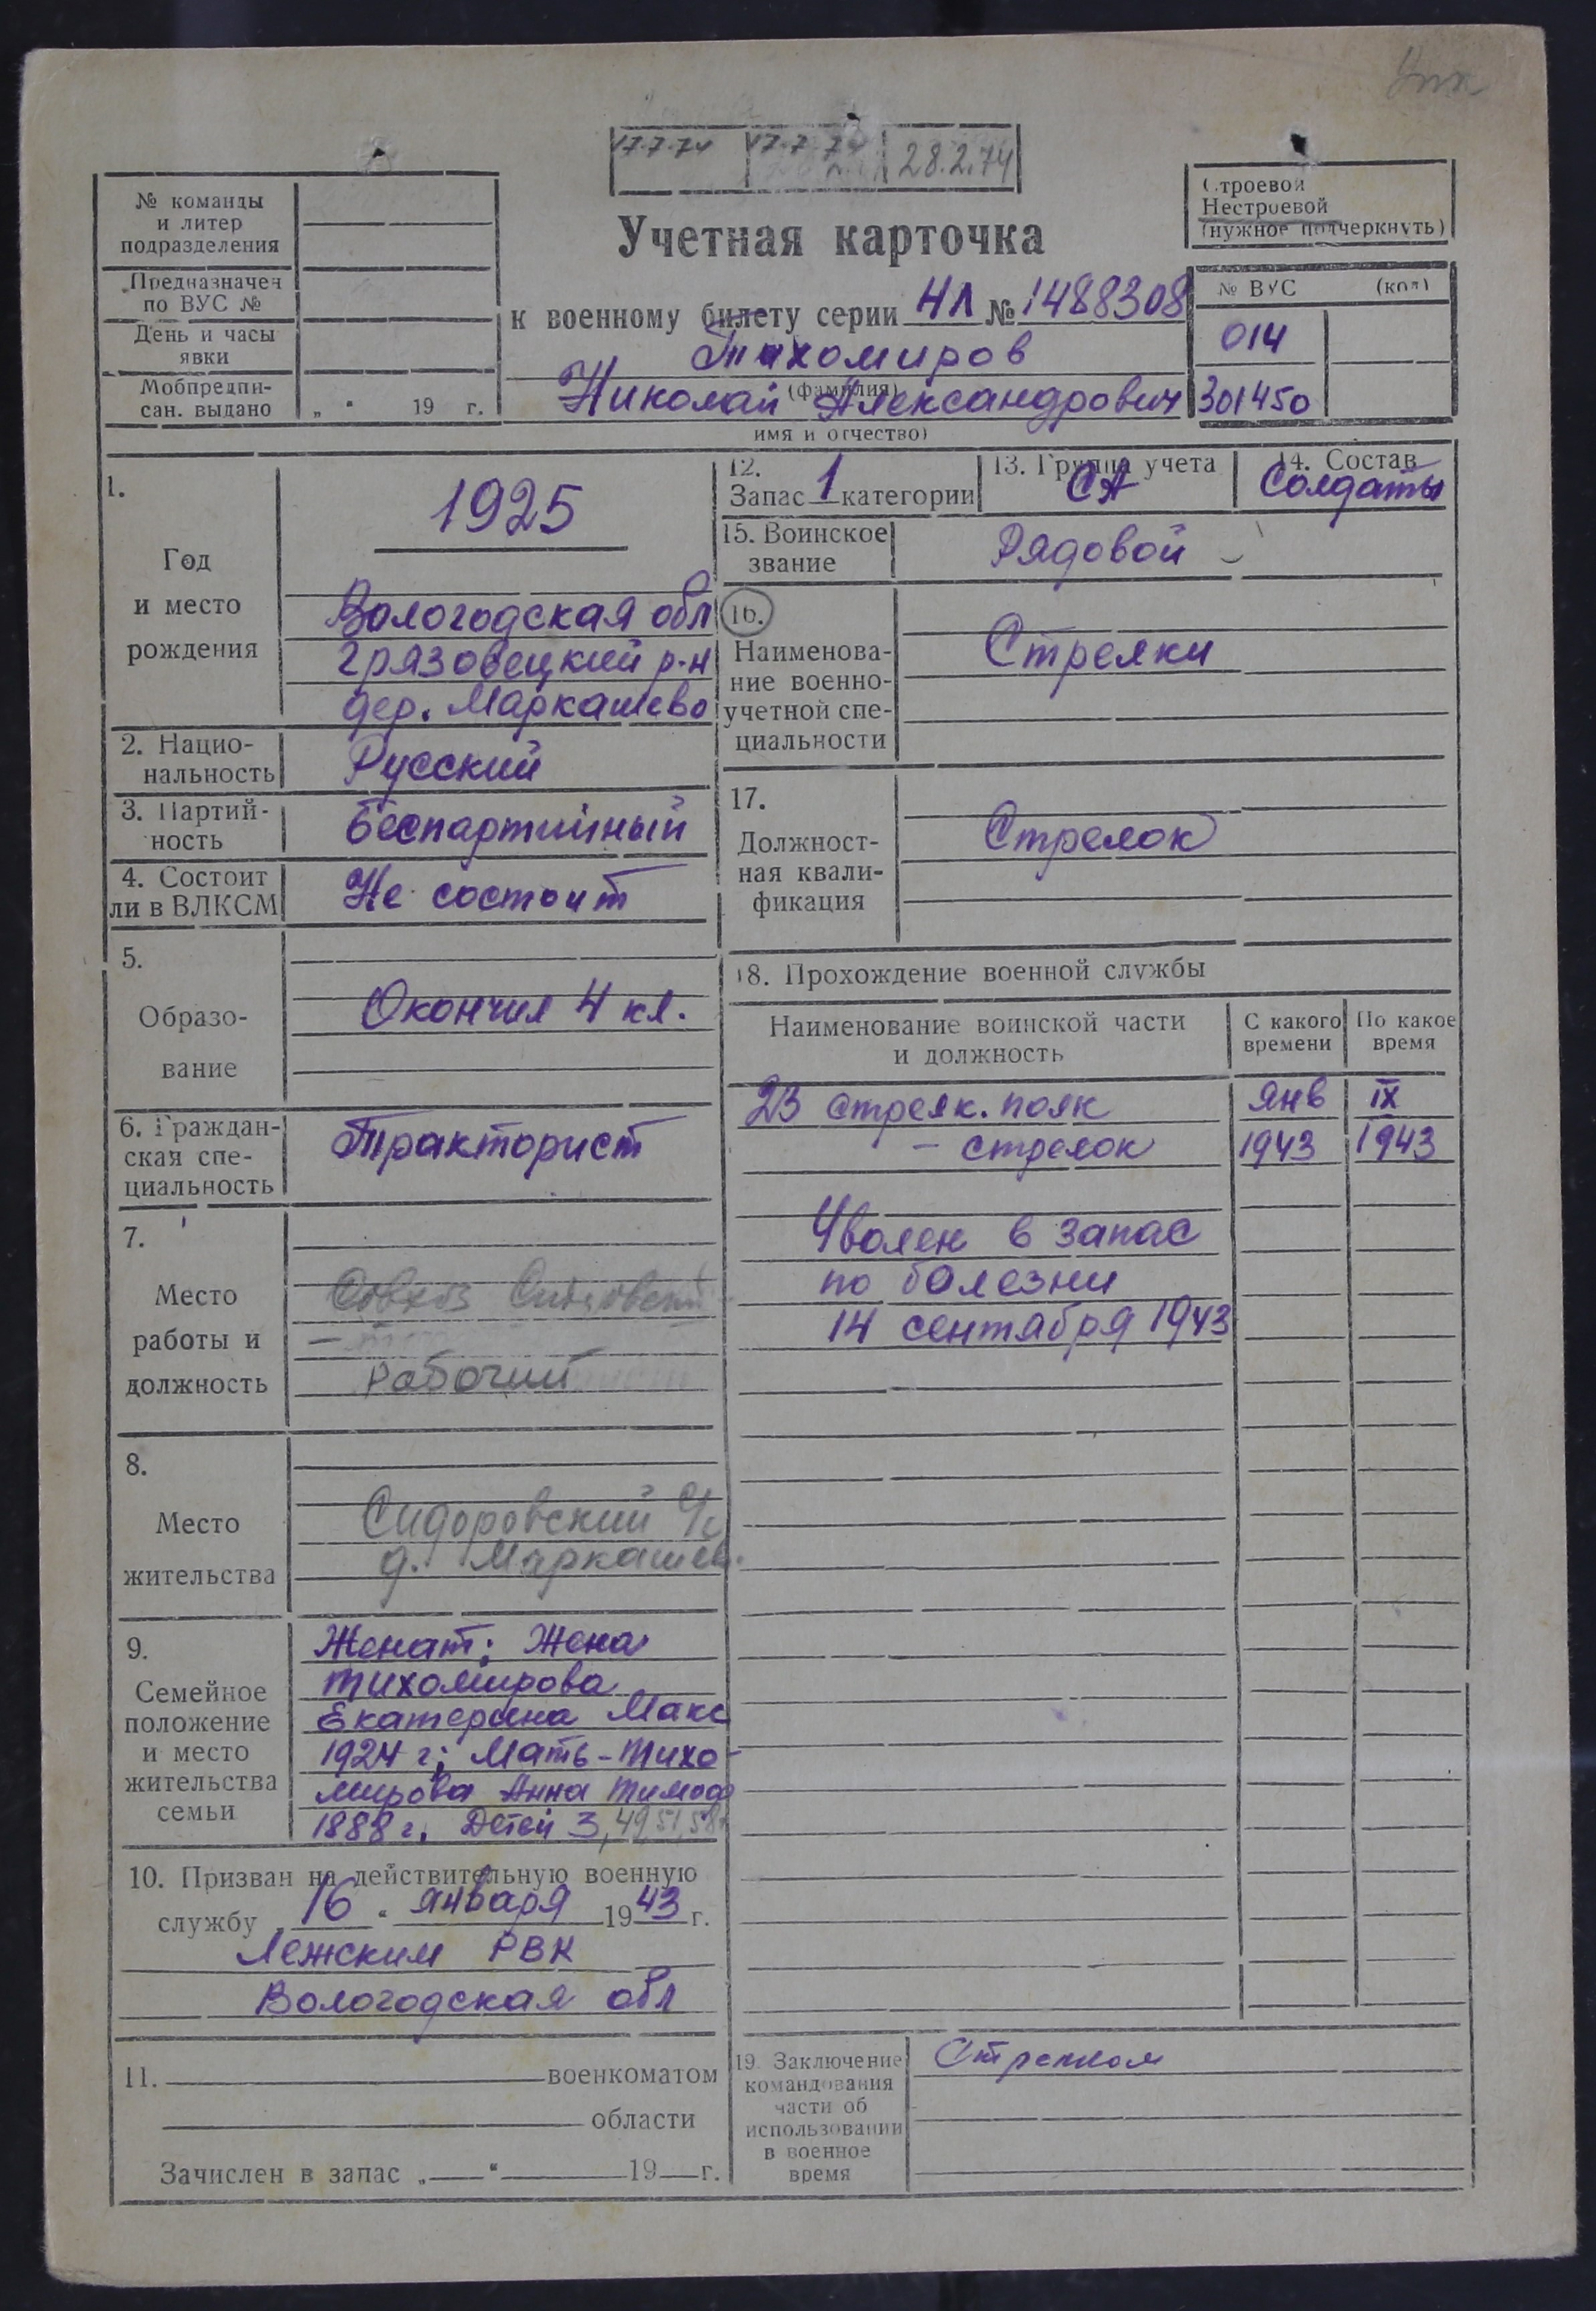 17.7.74 17.7.74 28.2.74
№ команды
и литер
подразделения
Предназначен
по ВУС №
День и часы
явки
Мобпредпи-
сан. выдано „ " 19 г.
Учетная карточка
к военному билету серии НЛ № 1488308
Тихомиров
(фамилия)
Николай Александрович
имя и отчество)
Строевой
Нестроевой
(нужное подчеркнуть)
№ ВУС (код)
014
301450
1.
Год
и место
рождения
1925
Вологодская обл
Грязовецкий р-н
дер. Маркашево
2. Нацио-
нальность Русский
3. Партий-
ность Беспартийный
4. Состоит
ли в ВЛКСМ Не состоит
5.
Образо-
вание
Окончил 4 кл.
6. Граждан-
ская спе-
циальность
Тракторист
7.
Место
работы и
должность
Совхоз
Рабочий
8.
Место
жительства
Сидоровский с/с
д. Маркашев.
9.
Семейное
положение
и место
жительства
семьи
Женат; Жена
Тихомирова
Екатерина Макс
1924 г; Мать - Тихо-
мирова Анна Тимоф
1888 г. Детей 3, 49, 51, 58
10. Призван на действительную военную
службу „ 16 " января 1943 г.
Лежским РВК
Вологодская обл
11. военкоматом
области
Зачислен в запас „ " 19 г.
12.
Запас 1 категории
13. Группа учета
СА
14. Состав
Солдаты
15. Воинское
звание
Рядовой
16.
Наименова-
ние военно-
учетной спе-
циальности
Стрелки
17.
Должност-
ная квали-
фикация
Стрелок
18. Прохождение военной службы
Наименование воинской части
и должность
С какого
времени
По какое
время
23 стрелк. полк янв IX
- стрелок 1943 1943
Уволен в запас
по болезни
14 сентября 1943
19. Заключение
командования
части об
использовании
в военное
время
Стрелком